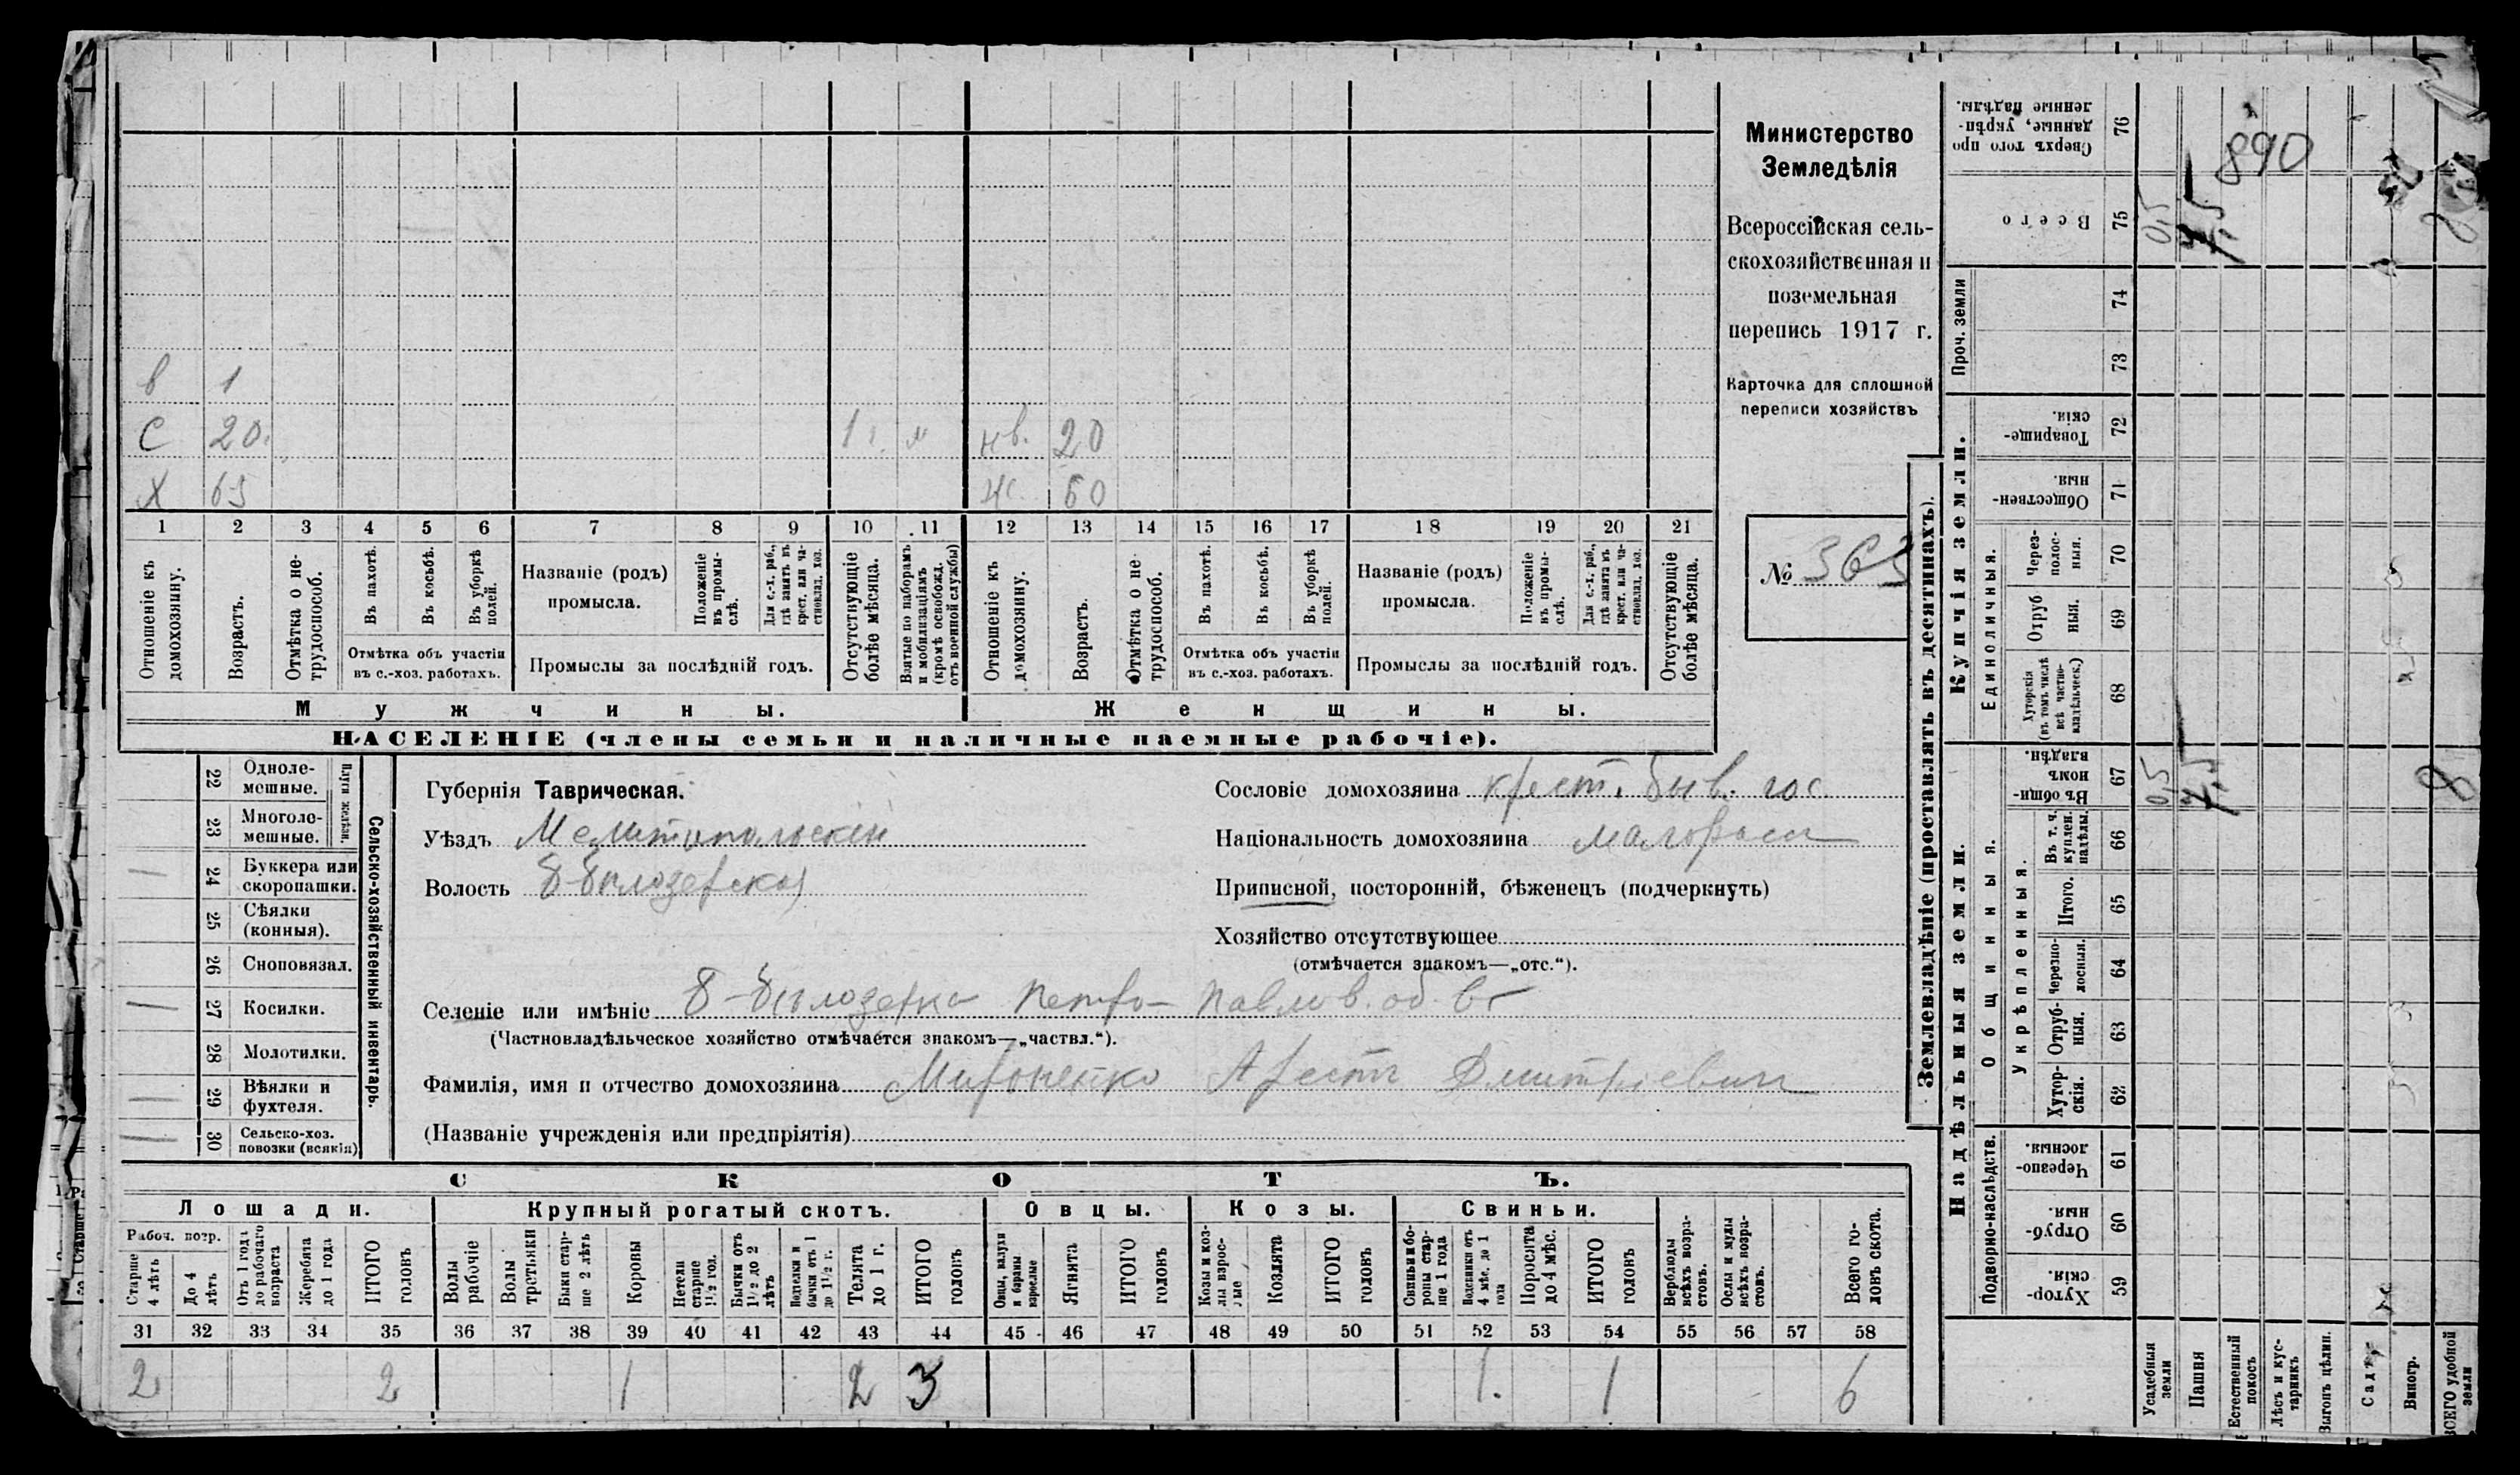 в 1
С 20. 1. м нв. 20
Х 65 ж. 60
1 2 3 4 5 6 7 8 9 10 11 12 13 14 15 16 17 18 19 20 21
Отношеніе къ домохозяину.
Возрастъ.
Отмѣтка о не-трудоспособ.
Въ пахотѣ.
Въ косьбѣ.
Въ уборкѣ полей.
Отмѣтка объ участіи
въ с.-хоз. работахъ.
Названіе (родъ)
промысла.
Положеніе въ промы-слѣ.
Для с.-х. раб., гдѣ занятъ въ крест. или ча-стновлад. хоз.
Промыслы за послѣдній годъ.
Отсутствующіе болѣе мѣсяца.
Взятые по наборамъ и мобилизаціямъ (кромѣ освобожд. отъ военной службы)
Отношеніе къ домохозяину.
Возрастъ.
Отмѣтка о не-трудоспособ.
Въ пахотѣ.
Въ косьбѣ.
Въ уборкѣ полей.
Отмѣтка объ участіи
въ с.-хоз. работахъ.
Названіе (родъ)
промысла.
Положеніе въ промы-слѣ.
Для с.-х. раб., гдѣ занята въ крест. или ча-стновлад. хоз.
Промыслы за послѣдній годъ.
Отсутствующіе болѣе мѣсяца.
Мужчины.
Женщины.
НАСЕЛЕНІЕ (члены семьи и наличные наемные рабочіе).
Министерство
Земледѣлія
Всероссійская сель-
скохозяйственная и
поземельная
перепись 1917 г.
Карточка для сплошной
переписи хозяйствъ
№ 363
22 Одноле-мешные.
23 Многоле-мешные.
Плуги желѣзн.
24 Буккера или скоропашки.
25 Сѣялки (конныя).
26 Сноповязал.
27 Косилки.
28 Молотилки.
29 Вѣялки и фухтеля.
30 Сельско-хоз. повозки (всякія)
Сельско-хозяйственный инвентарь.
Губернія Таврическая.
Уѣздъ Мелитопольскій
Волость Б-Бѣлозерская
Сословіе домохозяина крест. быв. гос
Національность домохозяина малоросс
Приписной, посторонній, бѣженецъ (подчеркнуть)
Хозяйство отсутствующее
(отмѣчается знакомъ—„отс.“).
Селеніе или имѣніе Б-Бѣлозерка Петро-Павлов. об-во
(Частновладѣльческое хозяйство отмѣчается знакомъ—„частвл.“).
Фамилія, имя и отчество домохозяина Мироненко Арестъ Дмитріевич
(Названіе учрежденія или предпріятія)
СКОТЪ.
Лошади. Крупный рогатый скотъ. Овцы. Козы. Свиньи.
Рабоч. возр.
Старше 4 лѣтъ
До 4 лѣтъ
Отъ 1 года до рабочаго возраста
Жеребята до 1 года
ИТОГО головъ
Волы рабочіе
Волы третьяки
Быки стар-ше 2 лѣтъ
Коровы
Нетели старше 1½ год.
Бычки отъ 1½ до 2 лѣтъ
Подтелки и бычки отъ 1 до 1½ г.
Телята до 1 г.
ИТОГО головъ
Овцы, валухи и бараны взрослые
Ягнята
ИТОГО головъ
Козы и коз-лы взрос-лые
Козлята
ИТОГО головъ
Свиньи и бо-ровы стар-ше 1 года
Подсвинки отъ 4 мѣс. до 1 года
Поросята до 4 мѣс.
ИТОГО головъ
Верблюды всѣхъ возра-стовъ.
Ослы и мулы всѣхъ возра-стовъ.
Всего го-ловъ скота.
31 32 33 34 35 36 37 38 39 40 41 42 43 44 45 46 47 48 49 50 51 52 53 54 55 56 57 58
2 2 1 2 3 1. 1 6
Землевладѣніе (проставлять въ десятинахъ).
Купчія земли.
Надѣльныя земли.
Сверхъ того про данные, укрѣп-ленные надѣлы. 76
Всего 75 0,5 7,5
890
Проч. земли 74 73
Товарище-скія. 72
Обществен-ныя. 71
Единоличныя.
Через-полос-ныя. 70
Отруб ныя. 69
Хуторскія (въ томъ числѣ всѣ частно-владѣльческ.) 68
Общинныя.
Въ общи-номъ владѣн. 67 0,5 7,5 8
Укрѣпленныя.
Въ т. ч. куплен. надѣлы. 66
Итого. 65
Черезпо-лосныя. 64
Отруб-ныя. 63
Хутор-скія. 62
Подворно-наслѣдств.
Черезпо-лосныя. 61
Отруб-ныя. 60
Хутор-скія. 59
Усадебныя земли
Пашня
Естественный покосъ
Лѣсъ и кус-тарникъ
Выгонъ цѣлин.
Сад
Виногр.
ВСЕГО удобной земли